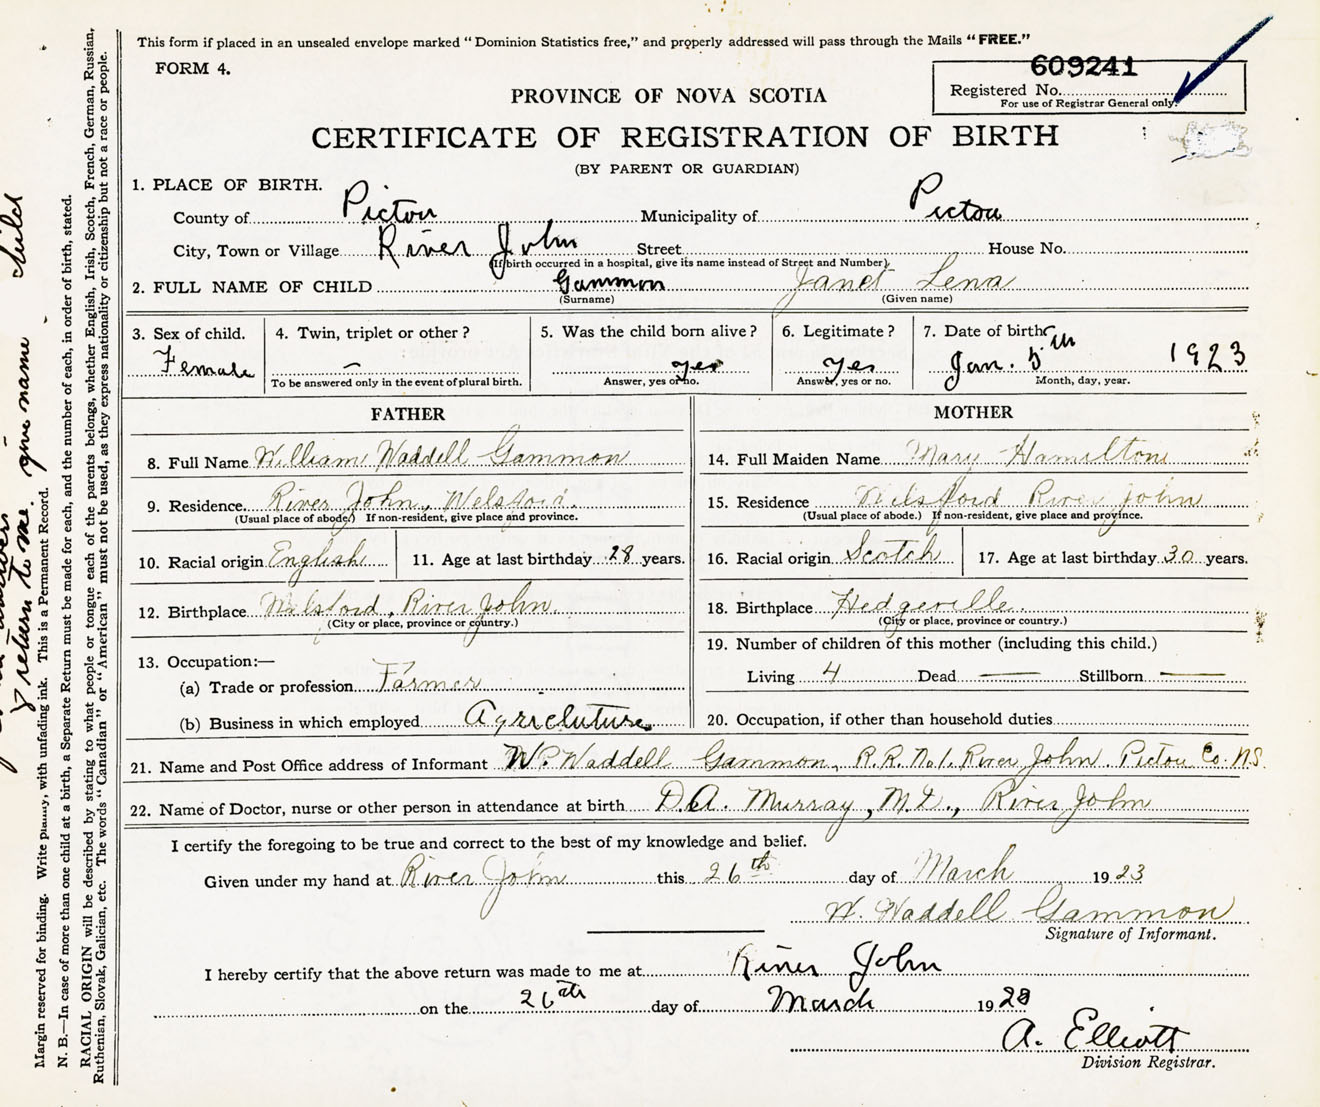 This form if placed in an unsealed envelope marked "Dominion Statistics free," and properly addressed will pass through the Mails "FREE."
FORM 4.
609241
Registered No.
For use of Registrar General only.
PROVINCE OF NOVA SCOTIA
CERTIFICATE OF REGISTRATION OF BIRTH
(BY PARENT OR GUARDIAN)
1. PLACE OF BIRTH.
County of Pictou Municipality of Pictou
City, Town or Village River John Street House No.
(If birth occurred in a hospital, give its name instead of Street and Number).
2. FULL NAME OF CHILD Gammon Janet Lena
(Surname) (Given name)
3. Sex of child. 4. Twin, triplet or other? 5. Was the child born alive? 6. Legitimate? 7. Date of birth
Female — yes Yes Jan. 5th 1923
To be answered only in the event of plural birth. Answer, yes or no. Answer, yes or no. Month, day, year.
FATHER MOTHER
8. Full Name William Waddell Gammon 14. Full Maiden Name Mary Hamilton
9. Residence. River John, Welsford. 15. Residence Welsford River John
(Usual place of abode.) If non-resident, give place and province. (Usual place of abode.) If non-resident, give place and province.
10. Racial origin English 11. Age at last birthday 28 years. 16. Racial origin Scotch 17. Age at last birthday 30 years.
12. Birthplace Welsford, River John. 18. Birthplace Hedgeville.
(City or place, province or country.) (City or place, province or country.)
13. Occupation:— 19. Number of children of this mother (including this child.)
(a) Trade or profession Farmer Living 4 Dead — Stillborn —
(b) Business in which employed Agricluture 20. Occupation, if other than household duties
21. Name and Post Office address of Informant W. Waddell Gammon, R.R. No 1. River John. Pictou Co. N.S.
22. Name of Doctor, nurse or other person in attendance at birth D.A. Murray, M.D., River John
I certify the foregoing to be true and correct to the best of my knowledge and belief.
Given under my hand at River John this 26th day of March 1923
W. Waddell Gammon
Signature of Informant.
I hereby certify that the above return was made to me at River John
on the 26th day of March 19
A. Elliott
Division Registrar.
Margin reserved for binding. Write plainly, with unfading ink. This is a Permanent Record.
N. B.—In case of more than one child at a birth, a Separate Return must be made for each, and the number of each, in order of birth, stated.
RACIAL ORIGIN will be described by stating to what people or tongue each of the parents belongs, whether English, Irish, Scotch, French, German, Russian,
Ruthenian, Slovak, Galician, etc. The words "Canadian" or "American" must not be used, as they express nationality or citizenship but not a race or people.
return to me. give name
child